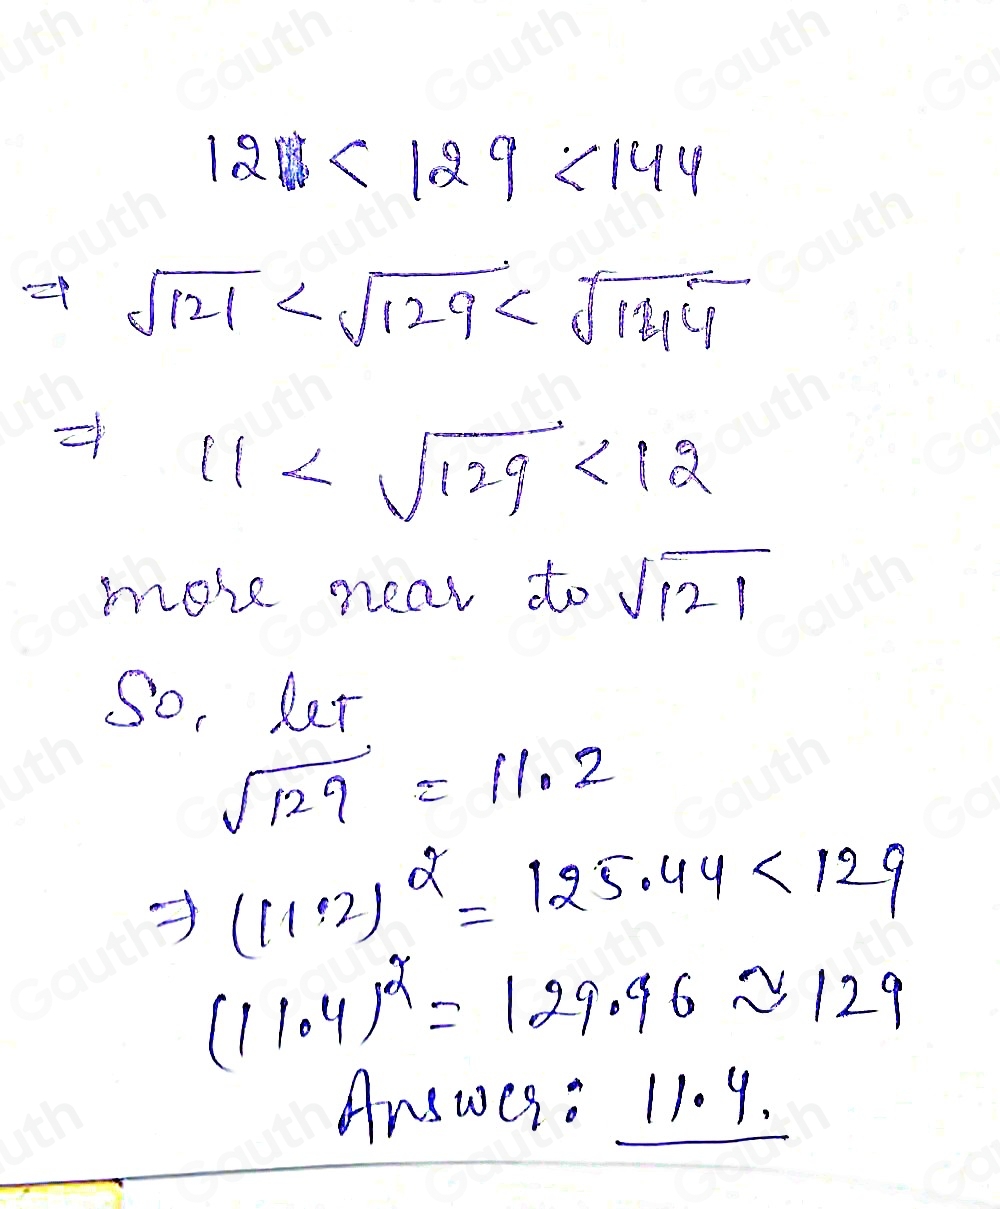 121 < 129 < 144
⇒ √121 < √129 < √144
⇒ 11 < √129 < 12
more near to √121
So, let
√129 = 11.2
⇒ (11.2)² = 125.44 < 129
(11.4)² = 129.96 ≈ 129
Answer: 11.4.
Gauth